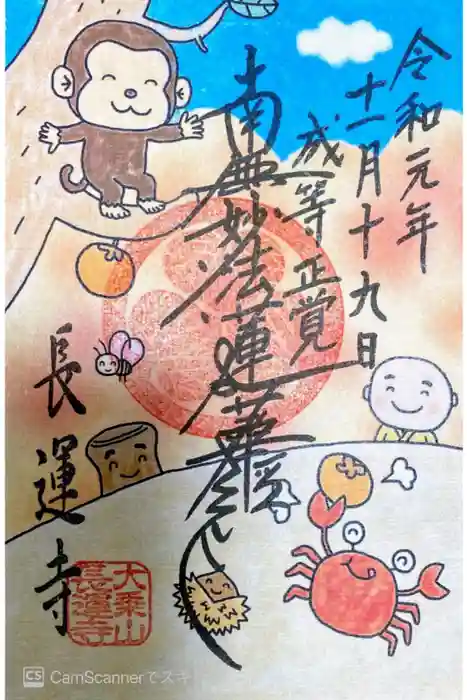 令和元年
十一月十九日
成等正覚
南無妙法蓮華経
長運寺
大乗山
長運寺
CS CamScannerでスキ